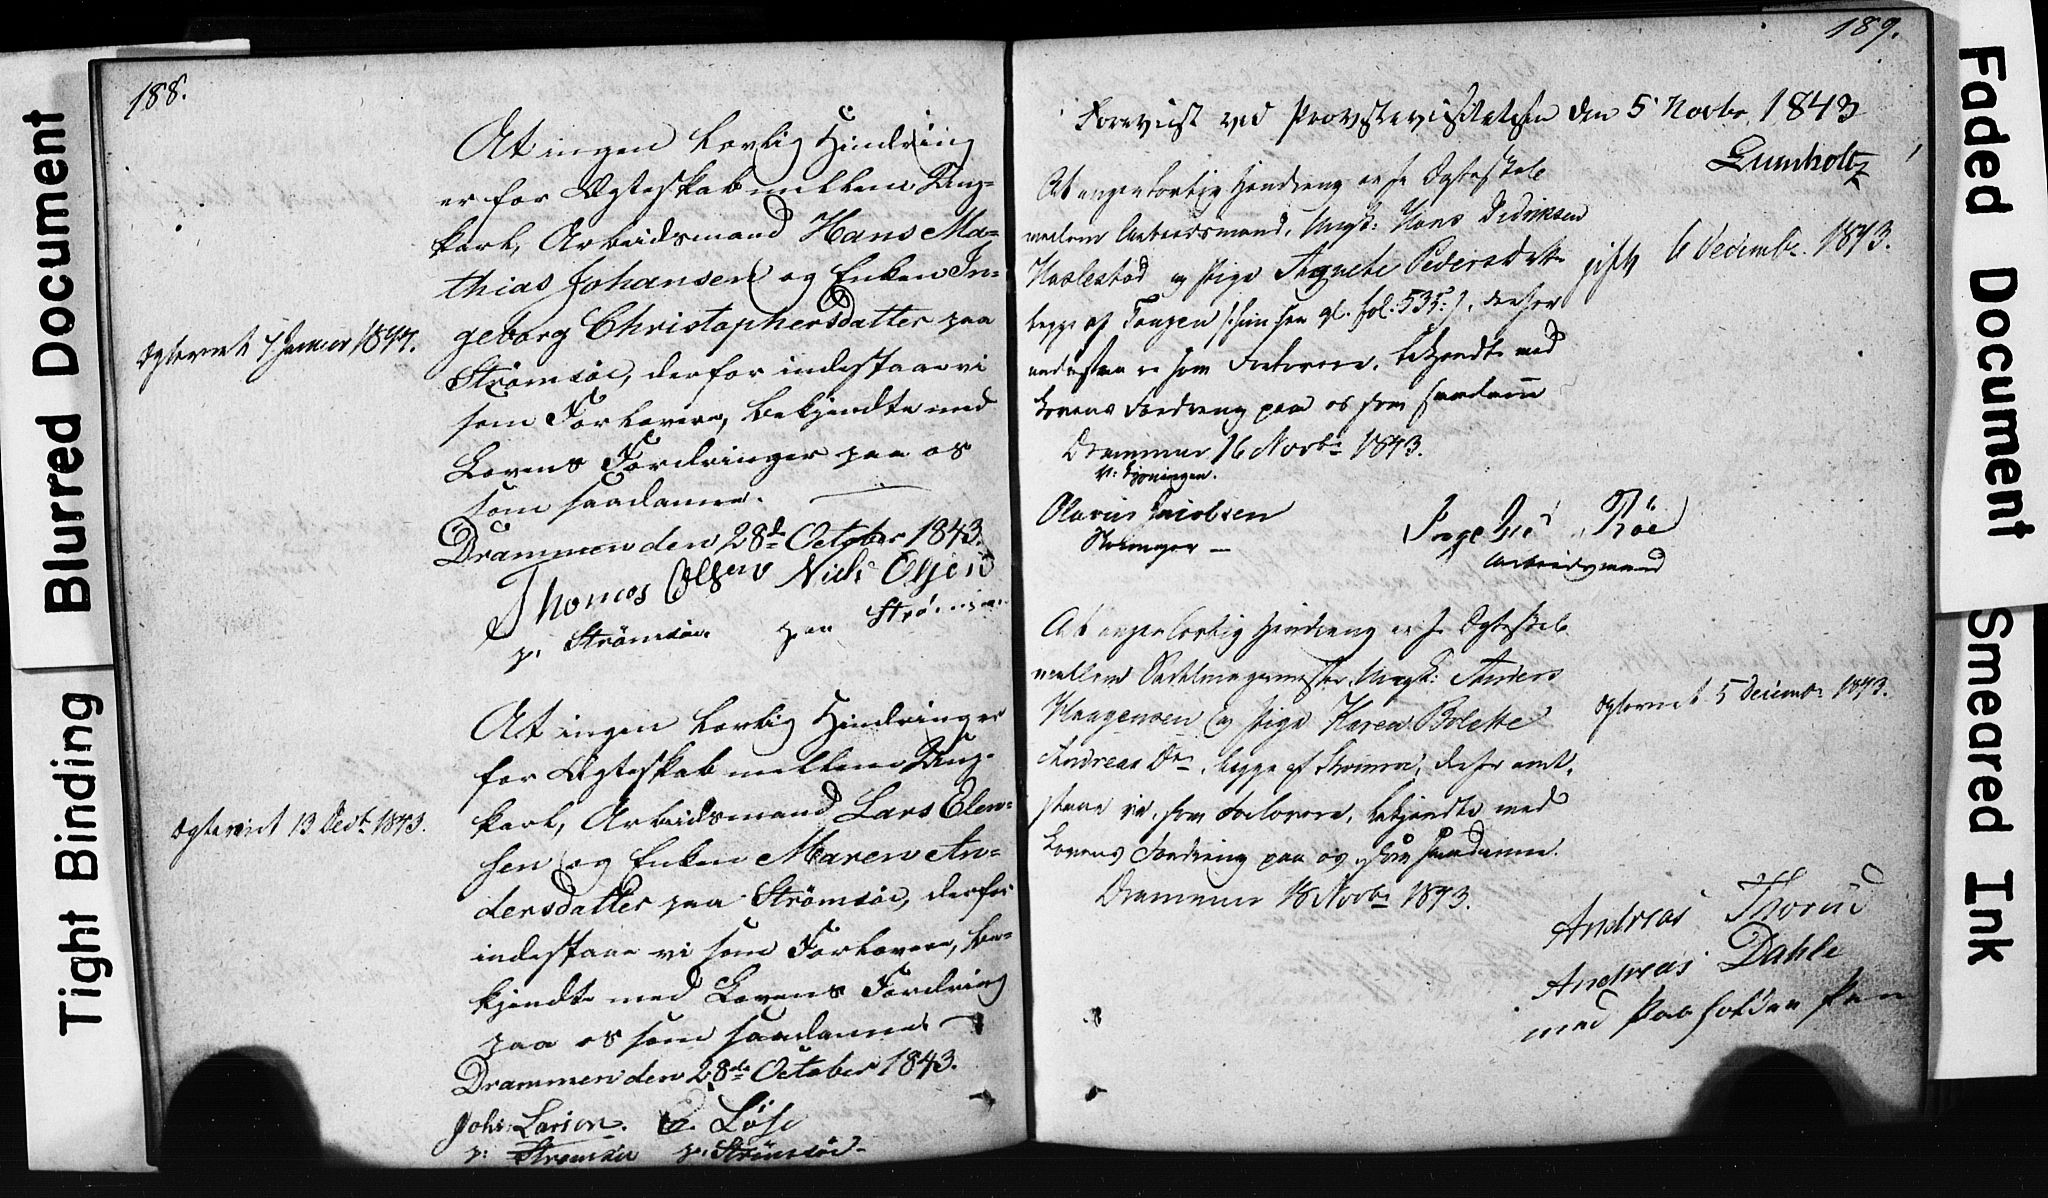 188.
At ingen lovlig Hindring
er for Ægteskab mellem Ung-
karl, Arbeidsmand Hans Ma-
thias Johansen og Enken In-
geborg Christophersdatter paa
Strømsøe, derfor indestaae vi
som Forlovere, bekjendte med
Lovens Fordringer paa os
som saadanne.
Drammen den 28de October 1843.
Thomas Olsen Niels Olsen
p. Strømsøe. paa Strømsøe
Ægteviet 7 Januar 1844.
At ingen lovlig Hindring er
for Ægteskab mellem Ung-
karl, Arbeidsmand Lars Elen-
sen og Enken Maren An-
dersdatter paa Strømsøe, derfor
indestaae vi som Forlovere, be-
kjendte med Lovens Fordring
paa os som saadanne.
Drammen den 28de October 1843.
Johs: Larsen. Løse
p: Strømsøe p: Strømsøe
Ægteviet 13 Decbr 1843.
189.
Foreviist ved Provstevisitatsen den 5 Novbr 1843
Lumholtz
At ingen lovlig Hindring er for Ægteskab
mellem Arbeidsmand, Ungk: Hans Didriksen
Haslestad og Pige Agnete Pedersdatter
begge af Tangen /: hun see gl. fol. 535 :/, derfor
indestaa vi som Forlovere, bekjendte med
Lovens Fordring paa os som saadanne
Drammen 16 Novbr 1843.
Olavus Jacobsen
Røe
Arbeidsmand
gift 6 Decembr. 1843.
At ingen lovlig Hindring er for Ægteskab
mellem Sadelmagermester, Ungk: Anders
Haagensen og Pige Karen Bolette
Andreas Dtr, begge af Strømsøe, derfor inde-
staae vi, som Forlovere, bekjendte med
Lovens Fordring paa os som saadanne.
Drammen 18 Novbr 1843.
Andreas Thorud
Andreas Dahle
med Paaholden Pen
Ægteviet 5 Decembr 1843.
Blurred Document
Tight Binding
Faded Document
Smeared Ink